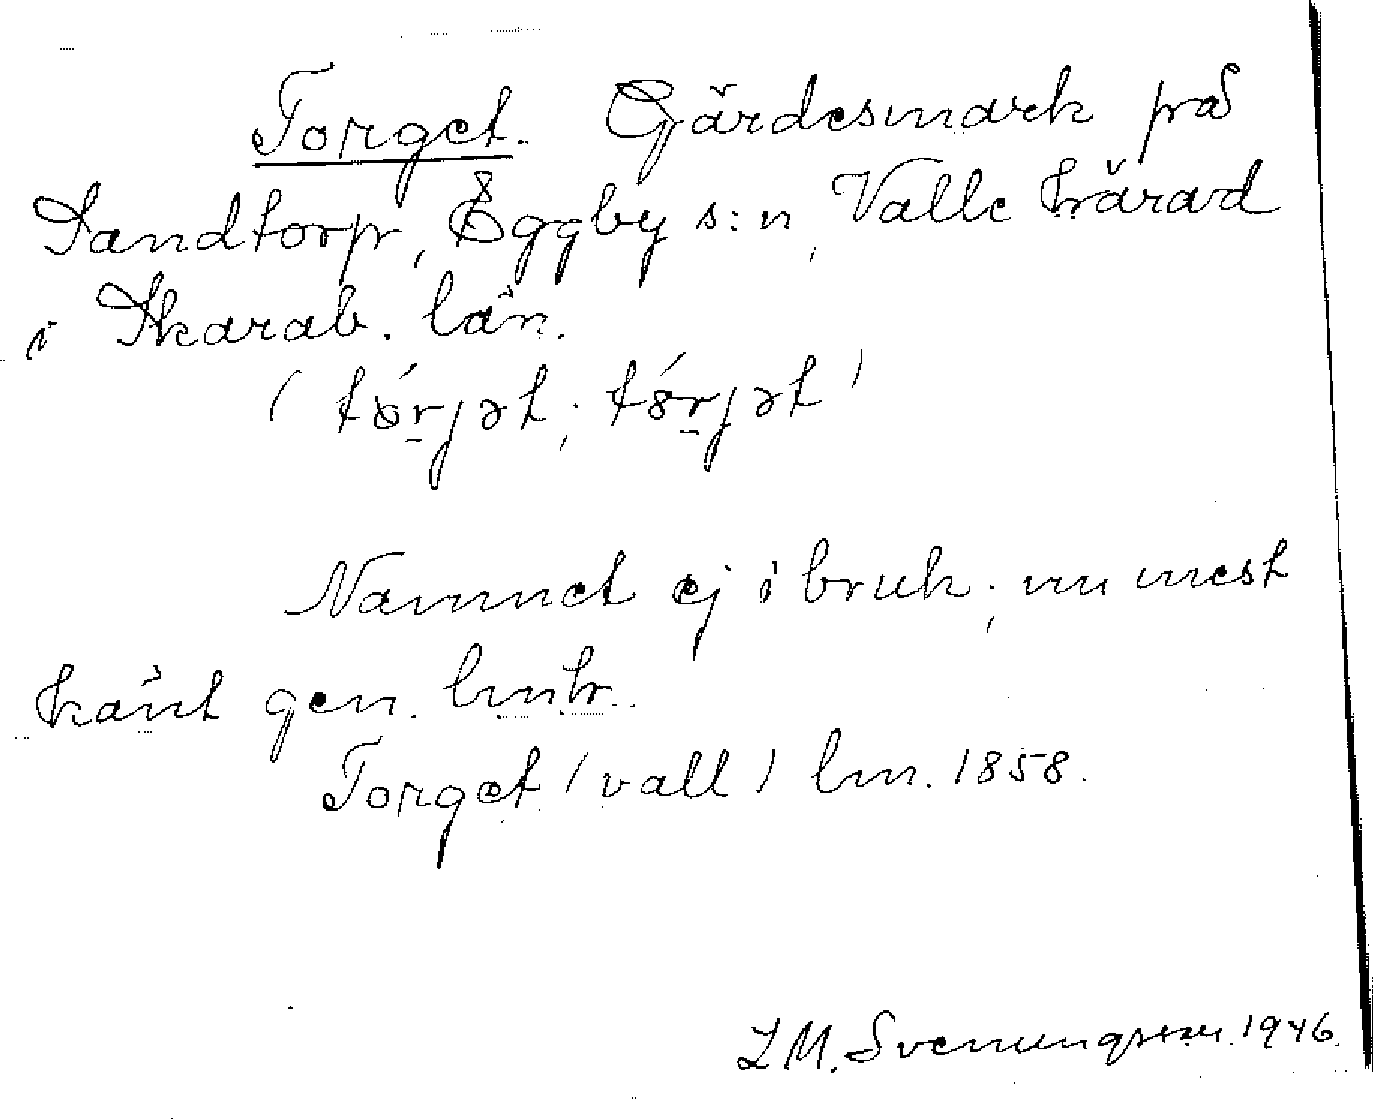 Torget. Gärdesmark på
Sandtorp, Eggby s:n, Valle härad
i Skarab. län.
(tórjət; tórjət)
Namnet ej i bruk; nu mest
känt gen. lmtr.
Torget (vall) lm. 1858.
L M. Svenungsson. 1946.